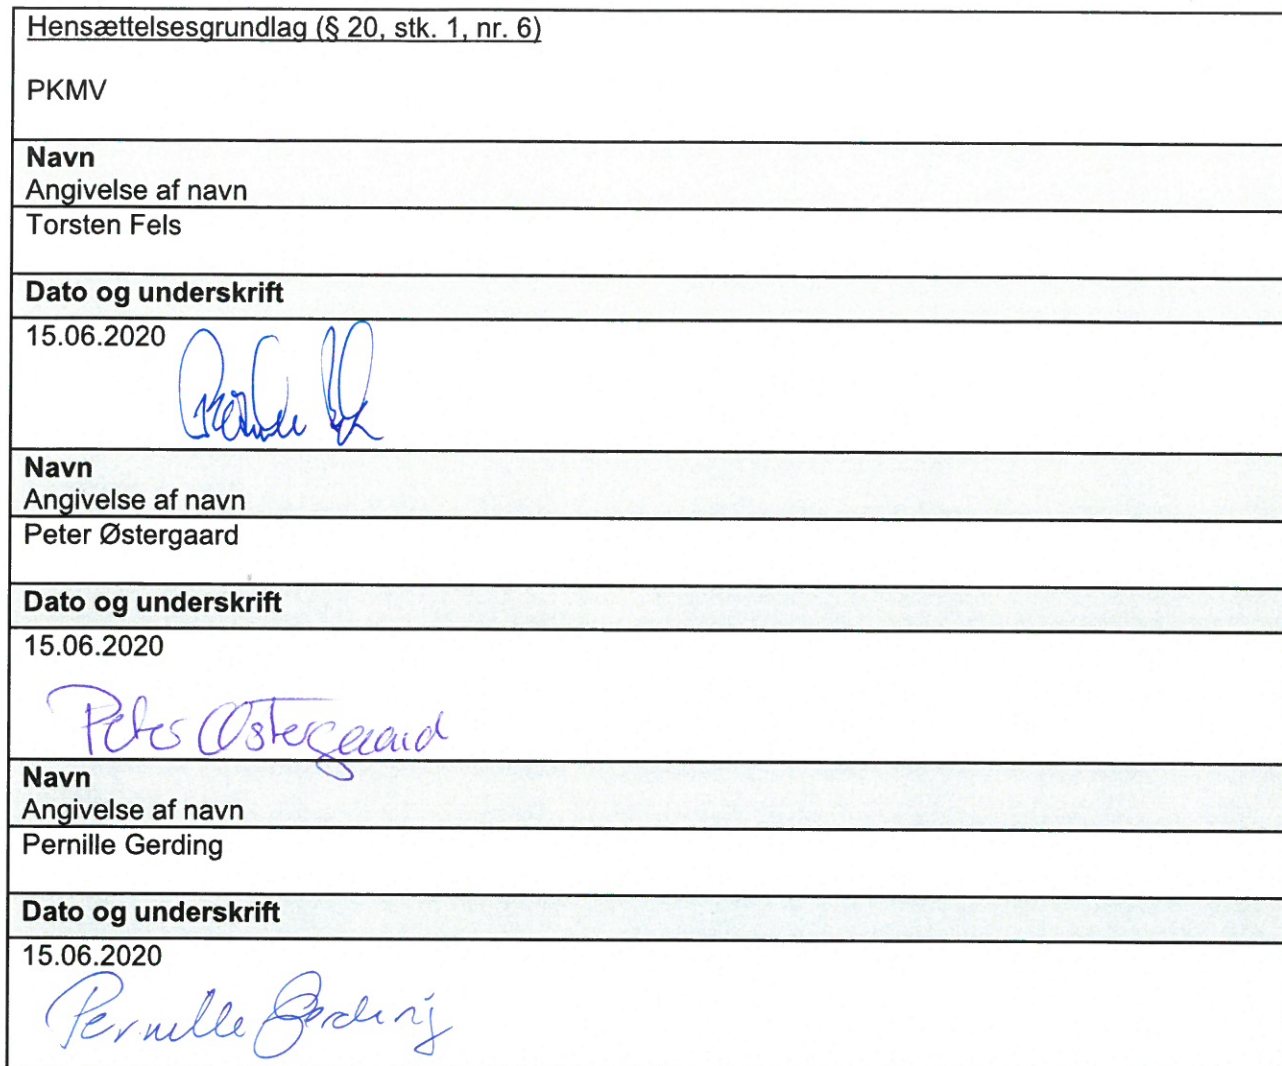 Hensættelsesgrundlag (§ 20, stk. 1, nr. 6)
PKMV
Navn
Angivelse af navn
Torsten Fels
Dato og underskrift
15.06.2020
Navn
Angivelse af navn
Peter Østergaard
Dato og underskrift
15.06.2020
Peter Østergaard
Navn
Angivelse af navn
Pernille Gerding
Dato og underskrift
15.06.2020
Pernille Gerding